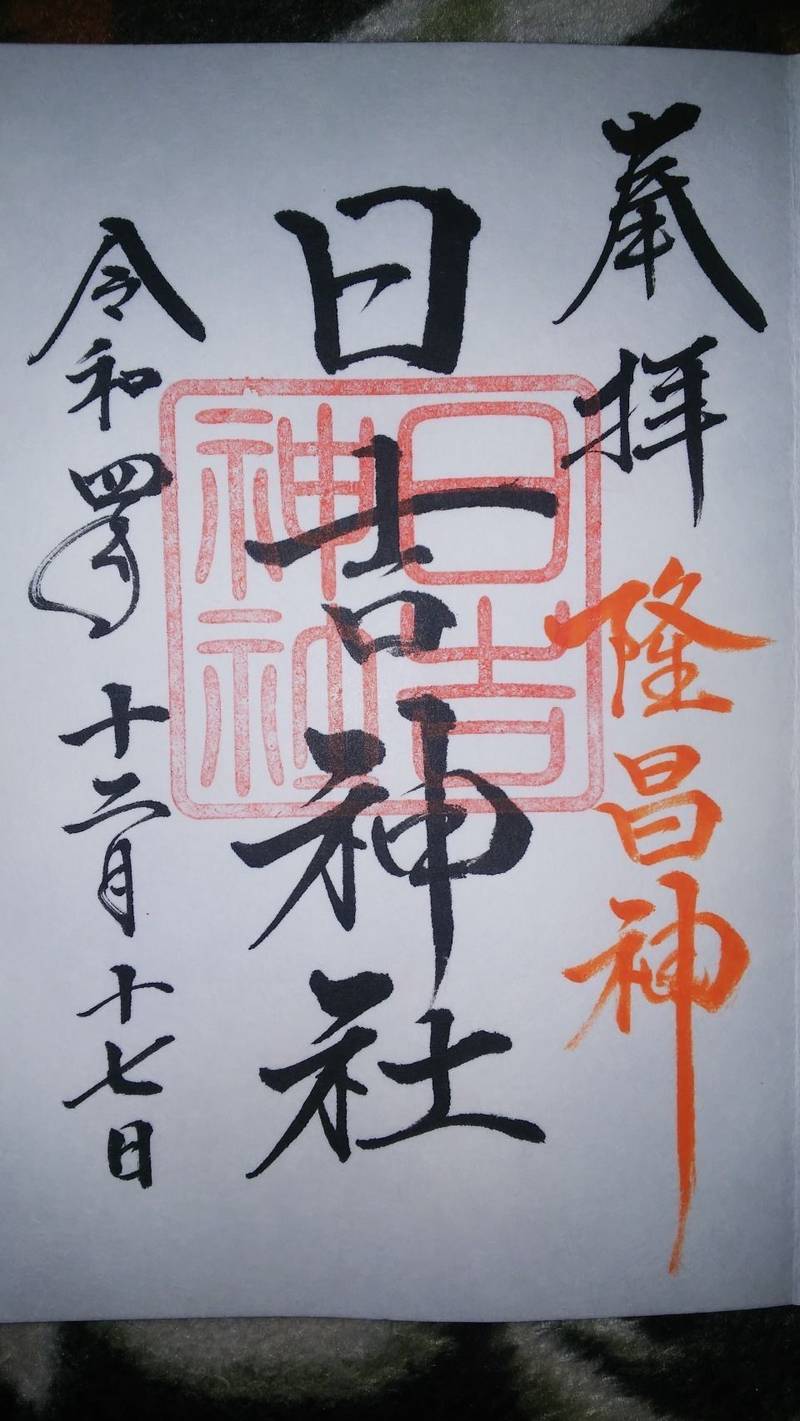 奉拝
隆昌神
日吉神社
日吉神社
令和四年 十二月 十七日